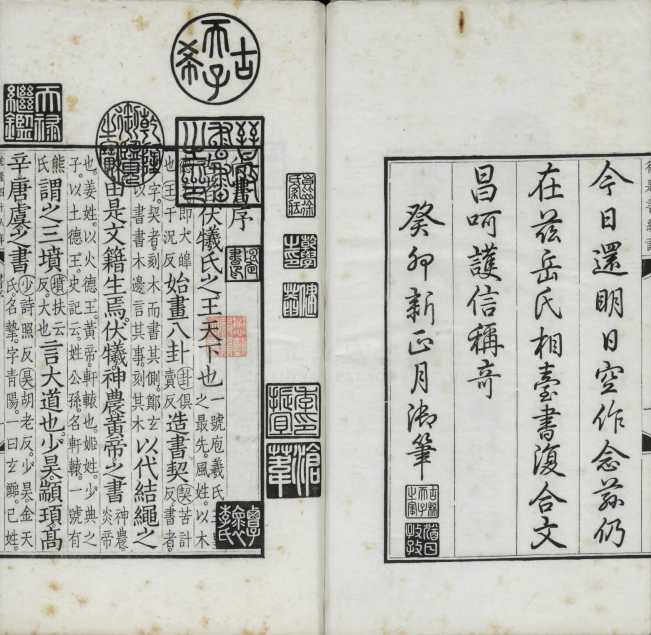 今日還明日空作念茲仍
在茲岳氏相臺書復合文
昌呵護信稱奇
癸卯新正月御筆
古稀天子之寶
猶日孜孜
古希天子
天祿繼鑑
乾隆御覽之寶
序
伏犧氏之王天下也一號庖羲氏
之最先風姓以木
即大皥
也王于況反始畫八卦卦俱
賣反造書契契苦計
反書者
字契者刻木而書其側鄭玄
以書書木邊言其事刻其木以代結繩之
由是文籍生焉伏犧神農黃帝之書神農
炎帝
也姜姓以火德王黃帝軒轅也姬姓少典之
子以土德王史記云姓公孫名軒轅一號有
熊
氏謂之三墳墳扶云
反大也言大道也少昊顓頊高
辛唐虞之書少詩照反昊胡老反少昊金天
氏名摯字青陽一曰玄囂己姓